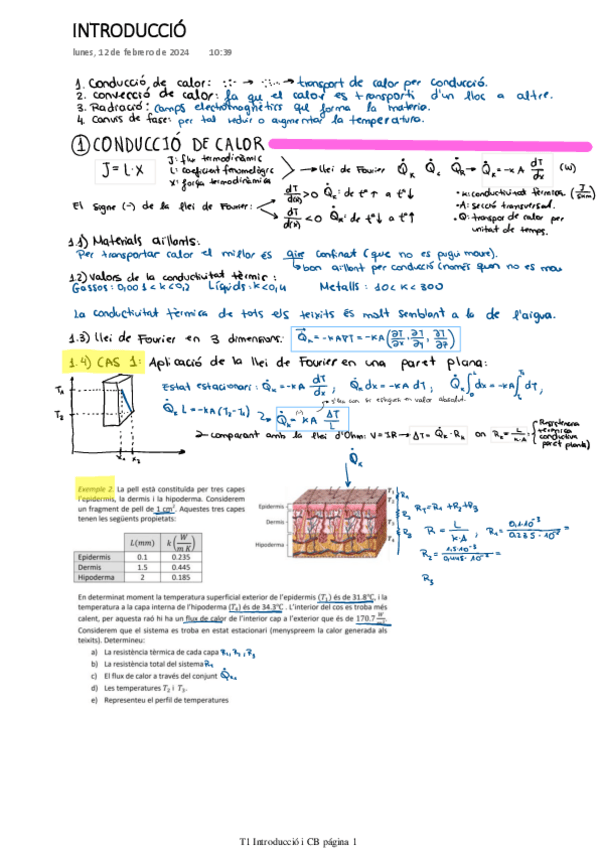 INTRODUCCIÓ
lunes, 12 de febrero de 2024 10:39
1. Conducció de calor: → → transport de calor per conducció.
2. convecció de calor: fa que el calor es transporti d'un lloc a altre.
3. Radiació: camps electromagnètics que forma la matèria.
4. Canvis de fase: per tal reduir o augmentar la temperatura.
① CONDUCCIÓ DE CALOR
J = L · X
J: flux termodinàmic
L: coeficient fenomològic
X: força termodinàmica
→ llei de Fourier Q̇k Q̇c Q̇R → Q̇k = -kA dT/dx (W)
El signe (-) de la llei de Fourier:
dT/d(x) > 0 Q̇k: de t° ↑ a t° ↓
dT/d(x) < 0 Q̇k: de t° ↓ a t° ↑
• k: conductivitat tèrmica
• A: secció transversal.
• Q̇: transport de calor per unitat de temps.
1.1) Materials aïllants:
Per transportar calor el millor és aire confinat (que no es pugui moure).
→ bon aïllant per conducció (només quan no es mou
1.2) Valors de la conductivitat tèrmic:
Gassos: 0,001 < k < 0,2 Líquids: k < 0,4 Metalls: 10 < k < 300
La conductivitat tèrmica de tots els teixits és molt semblant a la de l'aigua.
1.3) Llei de Fourier en 3 dimensions: Q̇k = -kA∇T = -kA
1.4) CAS 1: Aplicació de la llei de Fourier en una paret plana:
T1
T2
x1 x2
Estat estacionari: Q̇k = -kA dT/dx ; Q̇k dx = -kA dT ; Q̇k ∫ dx = -kA ∫ dT ;
Q̇k L = -kA (T2 - T1) → Q̇k = kA ΔT/L
en valor absolut.
→ comparant amb la llei d'Ohm: V = IR → ΔT = Q̇k · Rk on Rk = L/k·A
Resistència tèrmica conductiva paret plana
Q̇k
Exemple 2. La pell està constituïda per tres capes
l'epidermis, la dermis i la hipoderma. Considerem
un fragment de pell de 1 cm². Aquestes tres capes
tenen les següents propietats:
L(mm) k(W/m K)
Epidermis 0.1 0.235
Dermis 1.5 0.445
Hipoderma 2 0.185
Epidermis
Dermis
Hipoderma
T1
T2
T3
T4
R1
R2
R3
RT = R1 + R2 + R3
R = L/k·A , R1 = 0,1·10⁻³/0,235·10⁻⁴ =
R2 = 1,5·10⁻³/0,445·10⁻⁴ =
R3
En determinat moment la temperatura superficial exterior de l'epidermis (T1) és de 31.8°C, i la
temperatura a la capa interna de l'hipoderma (T4) és de 34.3°C. L'interior del cos es troba més
calent, per aquesta raó hi ha un flux de calor de l'interior cap a l'exterior que és de 170.7 W/m².
Considerem que el sistema es troba en estat estacionari (menyspreem la calor generada als
teixits). Determineu:
a) La resistència tèrmica de cada capa R1, R2, R3
b) La resistència total del sistema RT
c) El flux de calor a través del conjunt Q̇k
d) Les temperatures T2 i T3.
e) Representeu el perfil de temperatures
T1 Introducció i CB página 1